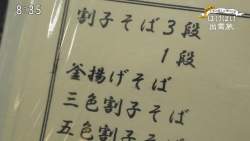 8:35
出雲旅
割子そば3段
1段
釜揚げそば
三色割子そば
五色割子そば